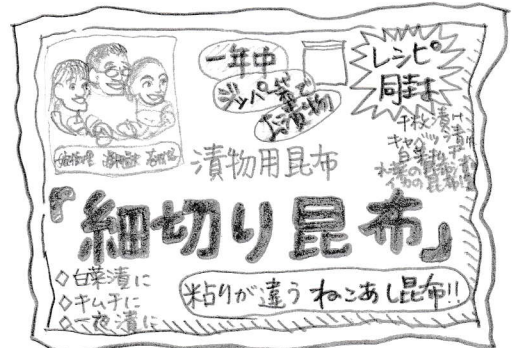 一年中
ジッパー袋で
お漬物
レシピ
同封
千枚漬け
キャベツ漬
白菜漬
漬物用昆布
『細切り昆布』
◇白菜漬に
◇キムチに
◇一夜漬に
粘りが違う ねこあし昆布!!